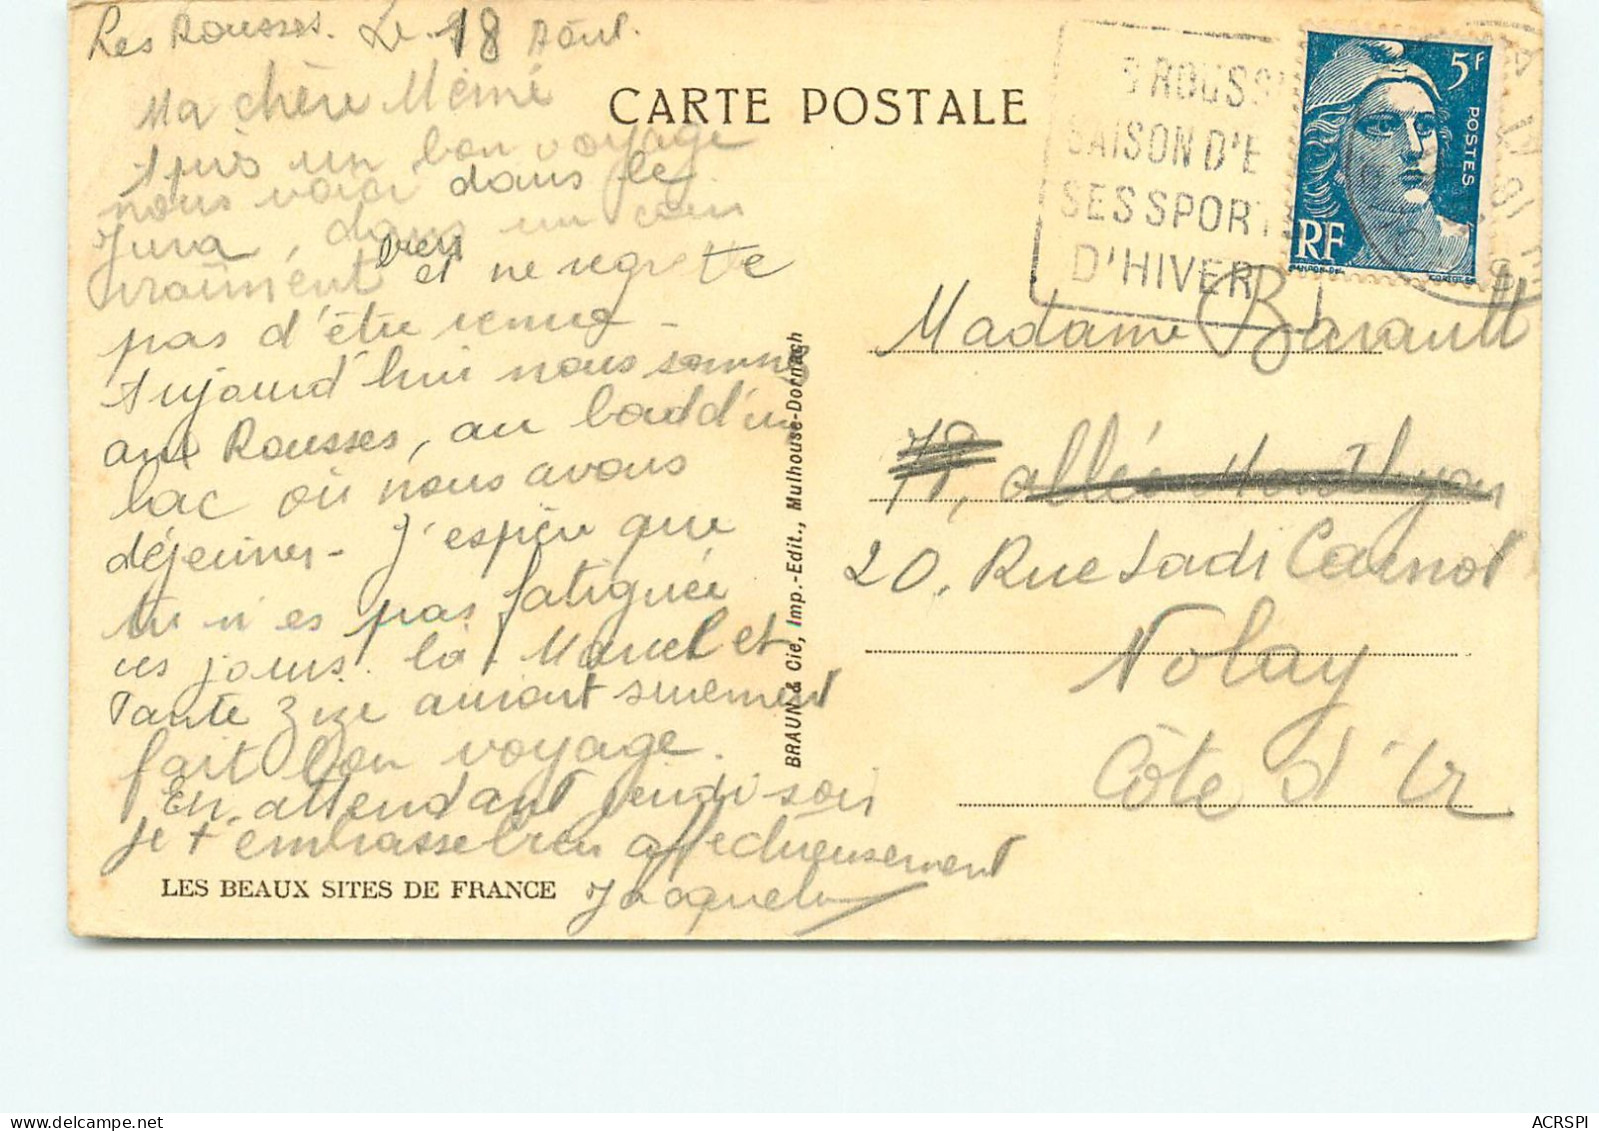 Les Rousses. Le 18 Août.
Ma chère Mémé
Après un bon voyage
nous voici dans le
Jura, dans un coin
vraiment bien et ne regrette
pas d'être venue -
Aujourd'hui nous sommes
aux Rousses, au bord d'un
lac où nous avons
déjeuner - J'espère que
tu n'es pas fatiguée
ces jours. là. Marcel et
Tante Zize auront surement
fait bon voyage.
En attendant jeudi soir
je t'embrasse bien affectueusement
Jacqueline
LES BEAUX SITES DE FRANCE
CARTE POSTALE
BRAUN & Cie, Imp.-Edit., Mulhouse-Dornach
S ROUSS
SAISON D'E
SES SPORT
D'HIVER
5F
POSTES
RF
Madame Barault
78, allée
20. Rue Sadi Carnot
Nolay
Côte d'Or
ACRSPI